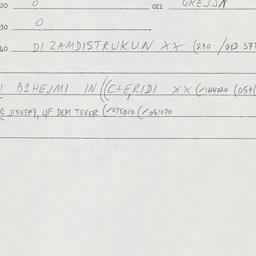 20 0 021 GREJSN
30 0
40 DI ZAMDISTRUKUN XX (290 /
BZHEJMI IN ((C+ERIDI XX (/144020 (054(
JIXEFM7, UF DEM TEVER (/075010 (/061070